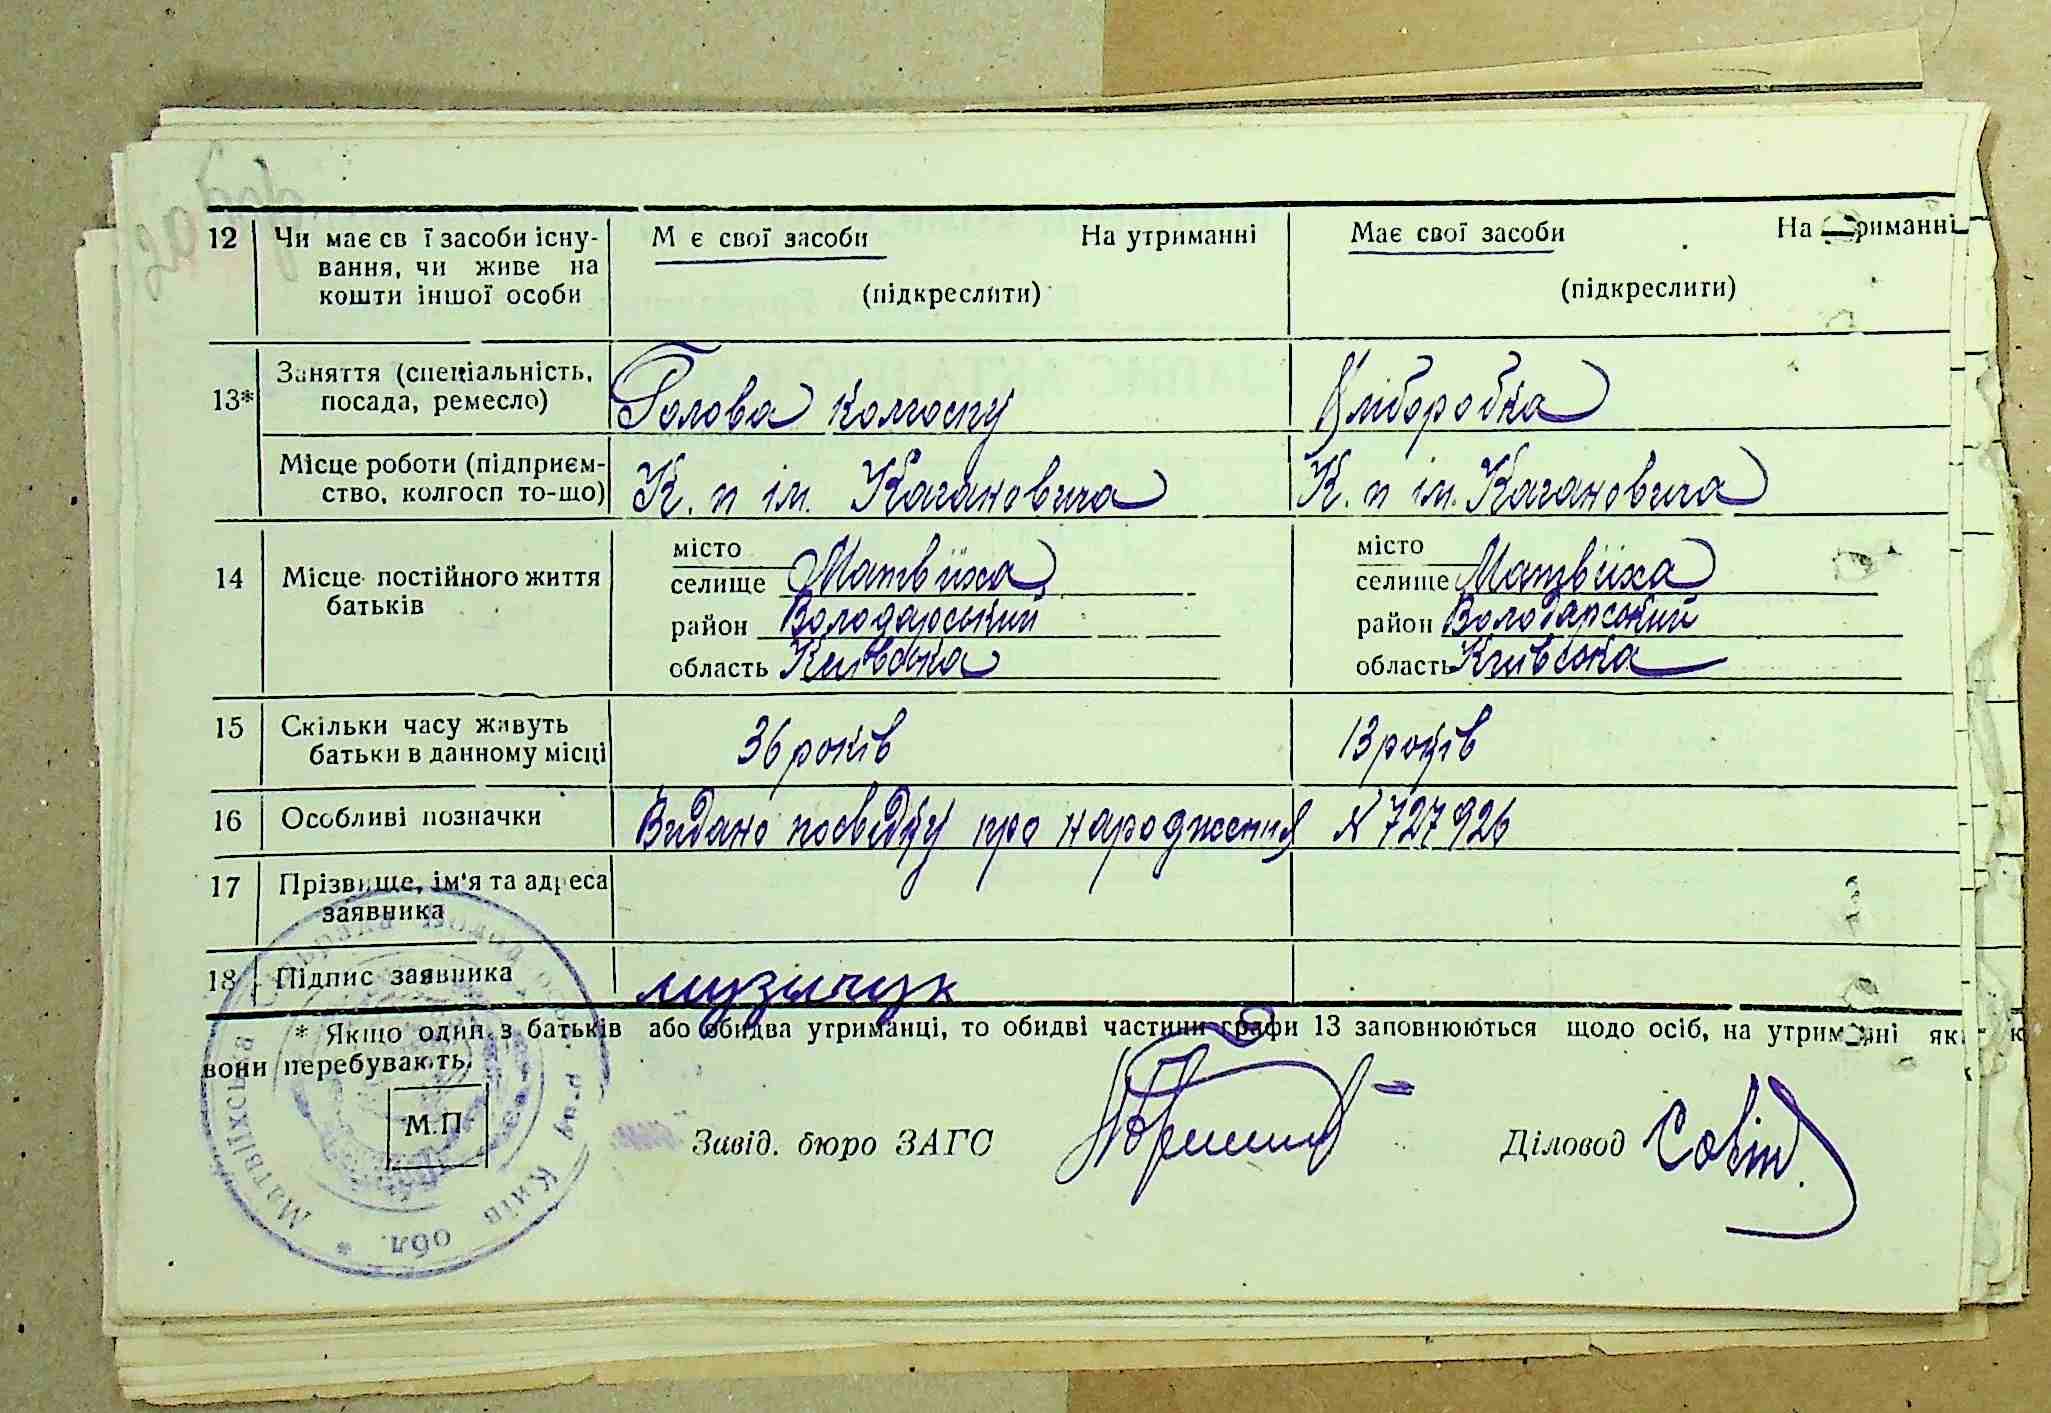 12 Чи має св ї засоби існу- М є свої засоби На утриманні Має свої засоби На риманні
вання, чи живе на
кошти іншої особи (підкреслити) (підкреслити)
13* Заняття (спеціальність, Голова колгоспу Хліборобка
посада, ремесло)
Місце роботи (підприєм- К. п ім. Кагановича К. п ім. Кагановича
ство, колгосп то-що)
14 Місце постійного життя місто місто
батьків селище Матвіїха селище Матвіїха
район Володарський район Володарський
область Київська область Київська
15 Скільки часу живуть 36 років 13 років
батьки в данному місці
16 Особливі позначки Видано посвідку про народження N 727926
17 Прізвище, ім'я та адреса
заявника
18 Підпис заявника музичук
* Якщо один з батьків або обидва утриманці, то обидві частини графи 13 заповнюються щодо осіб, на утриманні як к
вони перебувають.
М.П Завід. бюро ЗАГС Діловод
Матвіїхська Київ обл. *